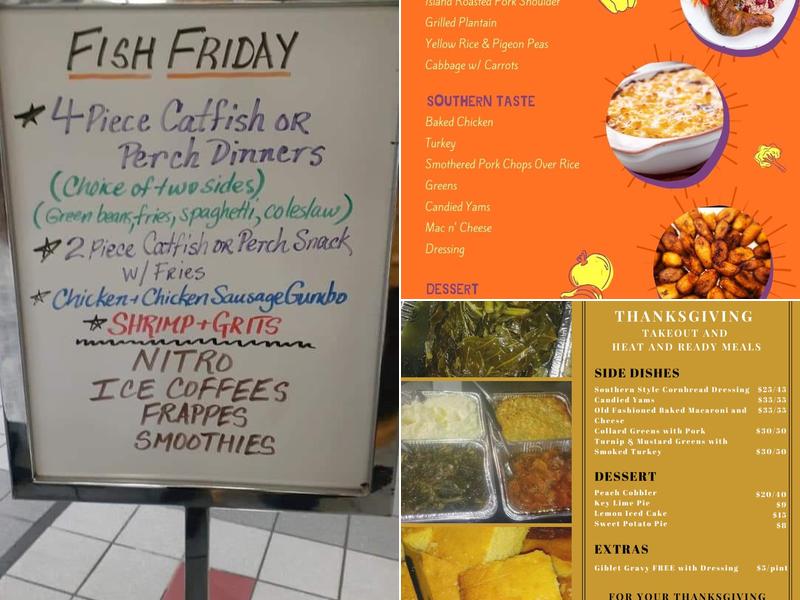 FISH FRIDAY
4 Piece Catfish OR
Perch Dinners
(Choice of two sides)
(Green beans, fries, spaghetti, coleslaw)
2 Piece Catfish OR Perch Snack
W/ FRIES
Chicken + Chicken Sausage Gumbo
SHRIMP + GRITS
NITRO
ICE COFFEES
FRAPPES
SMOOTHIES
Island Roasted Pork Shoulder
Grilled Plantain
Yellow Rice & Pigeon Peas
Cabbage w/ Carrots
SOUTHERN TASTE
Baked Chicken
Turkey
Smothered Pork Chops Over Rice
Greens
Candied Yams
Mac n' Cheese
Dressing
DESSERT
THANKSGIVING
TAKEOUT AND
HEAT AND READY MEALS
SIDE DISHES
Southern Style Cornbread Dressing $25/45
Candied Yams $35/55
Old Fashioned Baked Macaroni and $35/55
Cheese
Collard Greens with Pork $30/50
Turnip & Mustard Greens with
Smoked Turkey $30/50
DESSERT
Peach Cobbler $20/40
Key Lime Pie $9
Lemon Iced Cake $15
Sweet Potato Pie $8
EXTRAS
Giblet Gravy FREE with Dressing $5/pint
FOR YOUR THANKSGIVING